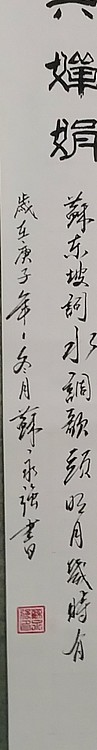 嬋娟
蘇東坡詞水調歌頭明月幾時有
歲在庚子年冬月蘇永强書